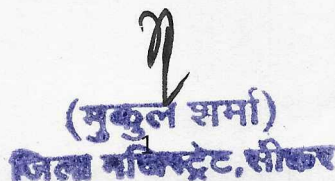 (मुकुल शर्मा)
1
जिला मजिस्ट्रेट, सीकर